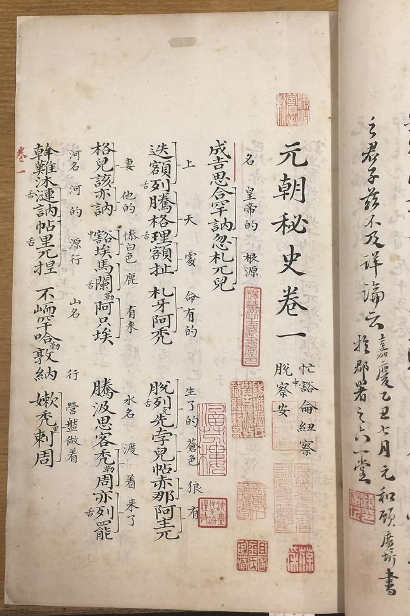 之君子茲不及詳論云嘉慶乙丑七月元和顧廣圻書
於郡署之六一堂
元朝秘史卷一
忙豁侖紐察
脫察安
名 皇帝的 根源
成吉思合罕訥忽札兀兒
上 天 處 命有的 生了的 蒼色 狼 有
迭額列騰格理額扯 札牙阿禿 脫列先孛兒帖赤那阿主兀
妻 他的 慘白色鹿 有來 水名 渡 着 來了
格兒該亦訥 豁埃馬闌勒阿只埃 騰汲思客禿勒周亦列罷
河名 河的 源行 山名 行 營盤做着
斡難沐漣訥帖里兀捏 不峏罕哈勒敦納 嫩禿剌周
卷一